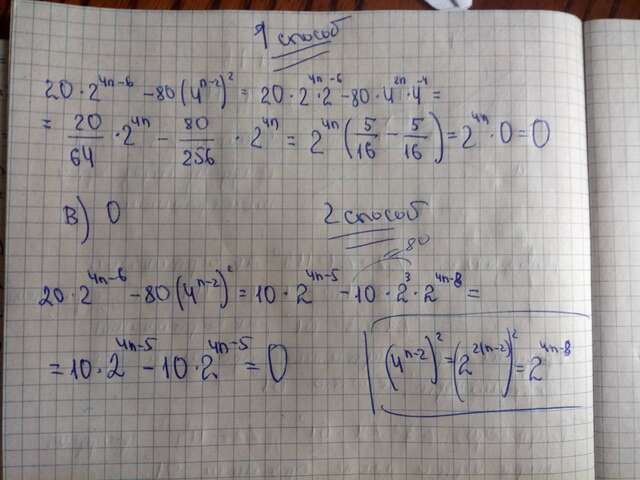 1 способ
20·2^{4n-6} - 80(4^{n-2})^2 = 20·2^{4n}·2^{-6} - 80·4^{2n}·4^{-4} =
= 20/64 · 2^{4n} - 80/256 · 2^{4n} = 2^{4n}(5/16 - 5/16) = 2^{4n}·0=0
В) 0
2 способ
80
20·2^{4n-6} - 80(4^{n-2})^2 = 10·2^{4n-5} - 10·2^3·2^{4n-8} =
= 10·2^{4n-5} - 10·2^{4n-5} = 0
(4^{n-2})^2 = (2^{2(n-2)})^2 = 2^{4n-8}